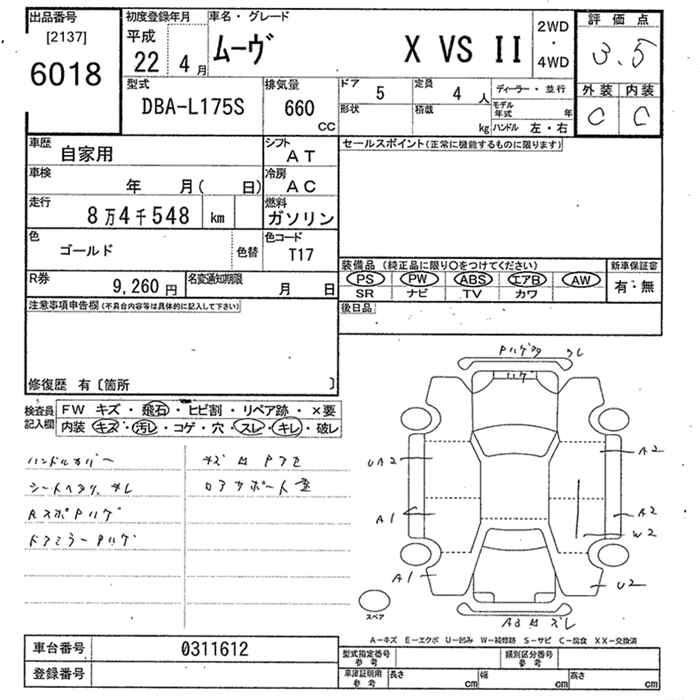 出品番号
[2137]
6018
初度登録年月
平成
22 4月
車名・グレード
ムーヴ X VS II
2WD
・
4WD
評価点
3.5
外装 内装
C C
型式
DBA-L175S
排気量
660
CC
ドア 5
形状
定員 4 人
積載 kg
ディーラー・並行
モデル年式 年
ハンドル 左・右
車歴
自家用
シフト
AT
車検
年 月( 日)
冷房
AC
走行
8万4千548 km
燃料
ガソリン
色
ゴールド
色替
色コード
T17
R券
9,260円
名変通知期限
月 日
セールスポイント(正常に機能するものに限ります)
装備品 (純正品に限り○をつけてください)
PS PW ABS エアB AW
SR ナビ TV カワ
新車保証書
有・無
後日品
注意事項申告欄(不具合内容等は具体的に記入して下さい)
修復歴 有〔箇所 〕
検査員
記入欄
FW キズ・飛石・ヒビ割・リペア跡・×要
内装 キズ・汚レ・コゲ・穴・スレ・キレ・破レ
ハンドルカバー
ドアミラーPハゲ
UA2
A1
A1
A2
A2
W2
U2
スペア
A-キズ E-エクボ U-凹み W-補修跡 S-サビ C-腐食 XX-交換済
車台番号 0311612
登録番号
型式指定番号
参考
類別区分番号
参考
車庫証明用
参考
長さ cm
幅 cm
高さ cm